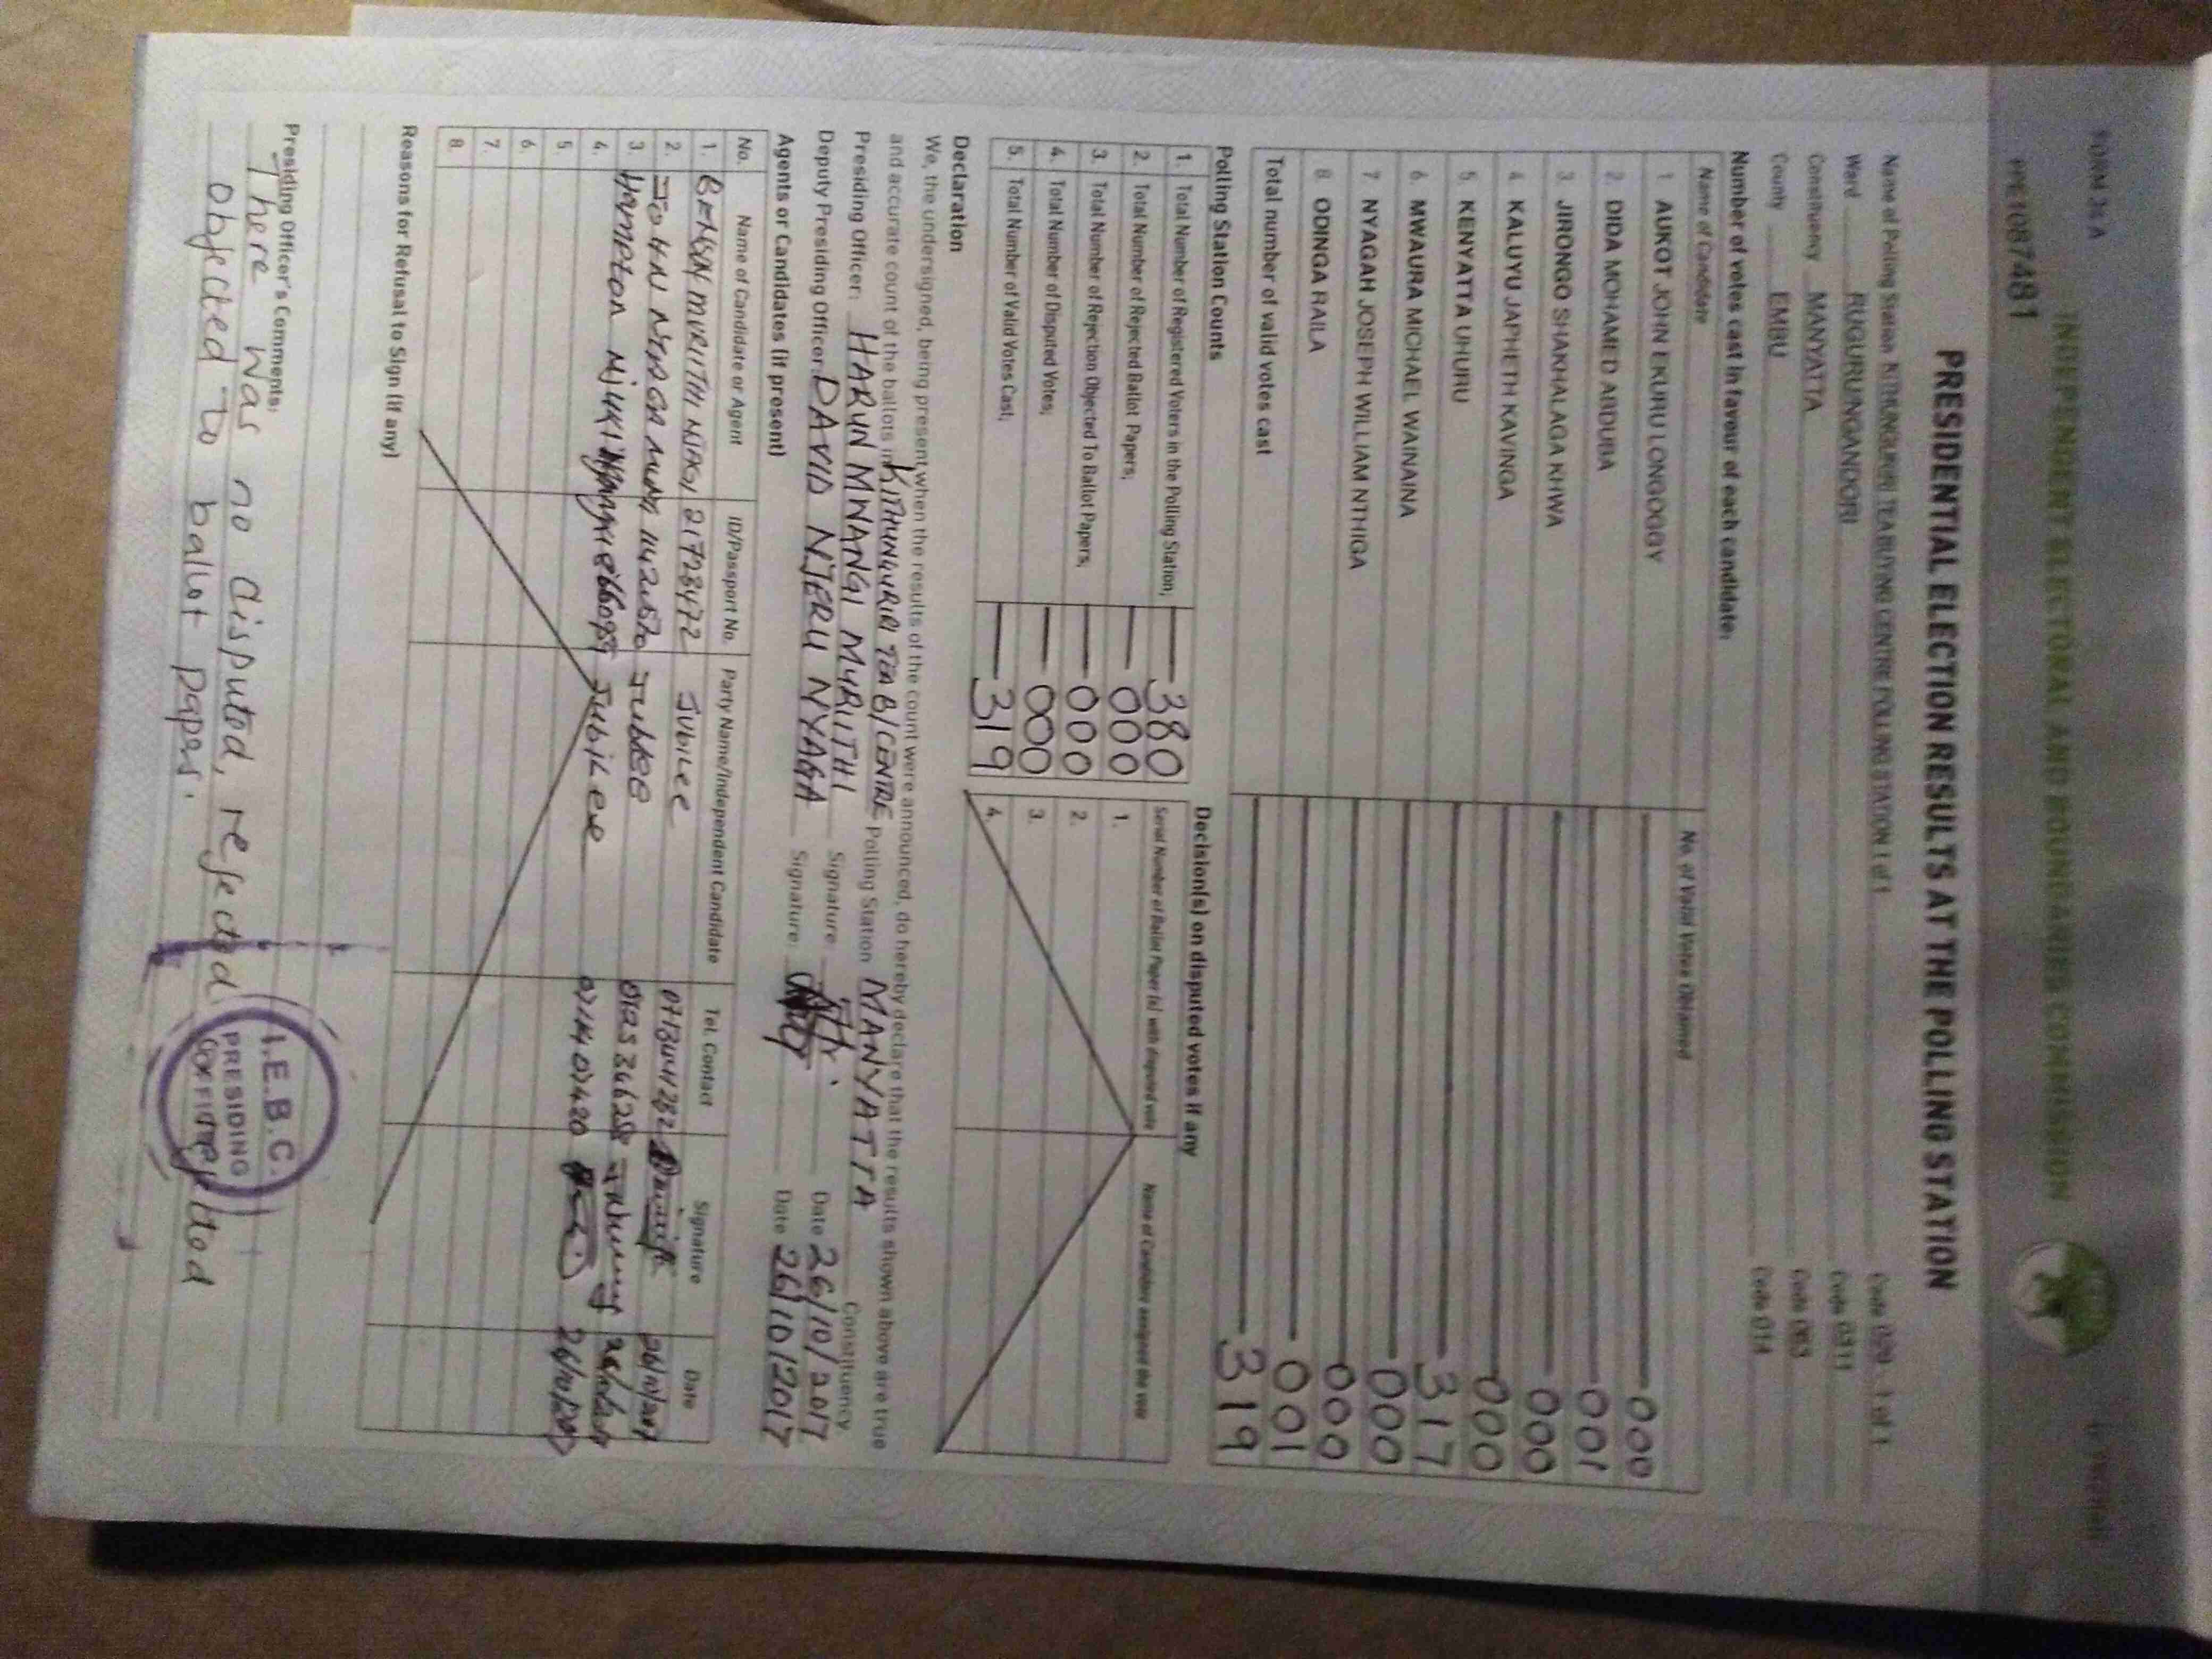 FORM 34 A
INDEPENDENT ELECTORAL AND BOUNDARIES COMMISSION
PRESIDENTIAL ELECTION RESULTS AT THE POLLING STATION
Name of Polling Station KITHUNGURIRI TEA BUYING CENTRE POLLING STATION 1 of 1 Code 029 - 1 of 1
Ward RUGURU/NGANDORI Code 0311
Constituency MANYATTA Code 063
County EMBU Code 014
Number of votes cast in favour of each candidate:
Name of Candidate No. of Valid Votes Obtained
1. AUKOT JOHN EKURU LONGOGGY 000
2. DIDA MOHAMED ABDUBA 001
3. JIRONGO SHAKHALAGA KHWA 000
4. KALUYU JAPHETH KAVINGA 000
5. KENYATTA UHURU 317
6. MWAURA MICHAEL WAINAINA 000
7. NYAGAH JOSEPH WILLIAM NTHIGA 000
8. ODINGA RAILA 001
Total number of valid votes cast 319
Polling Station Counts
1. Total Number of Registered Voters in the Polling Station; 380
2. Total Number of Rejected Ballot Papers; 000
3. Total Number of Rejection Objected To Ballot Papers; 000
4. Total Number of Disputed Votes; 000
5. Total Number of Valid Votes Cast; 319
Decision(s) on disputed votes if any
Serial Number of Ballot Paper (s) with disputed vote Name of Candidate assigned the vote
1.
2.
3.
4.
Declaration
We, the undersigned, being present when the results of the count were announced, do hereby declare that the results shown above are true
and accurate count of the ballots in KITHUNGURIRI TEA B/CENTRE Polling Station MANYATTA Constituency
Presiding Officer: HARUN MWANGI MURIITHI Signature Date 26/10/2017
Deputy Presiding Officer: DAVID NJERU NYAGA Signature: Date 26/10/2017
Agents or Candidates (if present)
No. Name of Candidate or Agent ID/Passport No. Party Name/Independent Candidate Tel. Contact Signature Date
1. BENSON MURIITHI NJAGI 21728472 JUBILEE 26/10/2017
2. JOHN Jubilee
3. HAMPTON NJUKI Jubilee 26/10/2017
4.
5.
6.
7.
8.
Reasons for Refusal to Sign (if any)
Presiding Officer's Comments:
There was no disputed, rejected
objected to ballot papers.
I.E.B.C.
PRESIDING